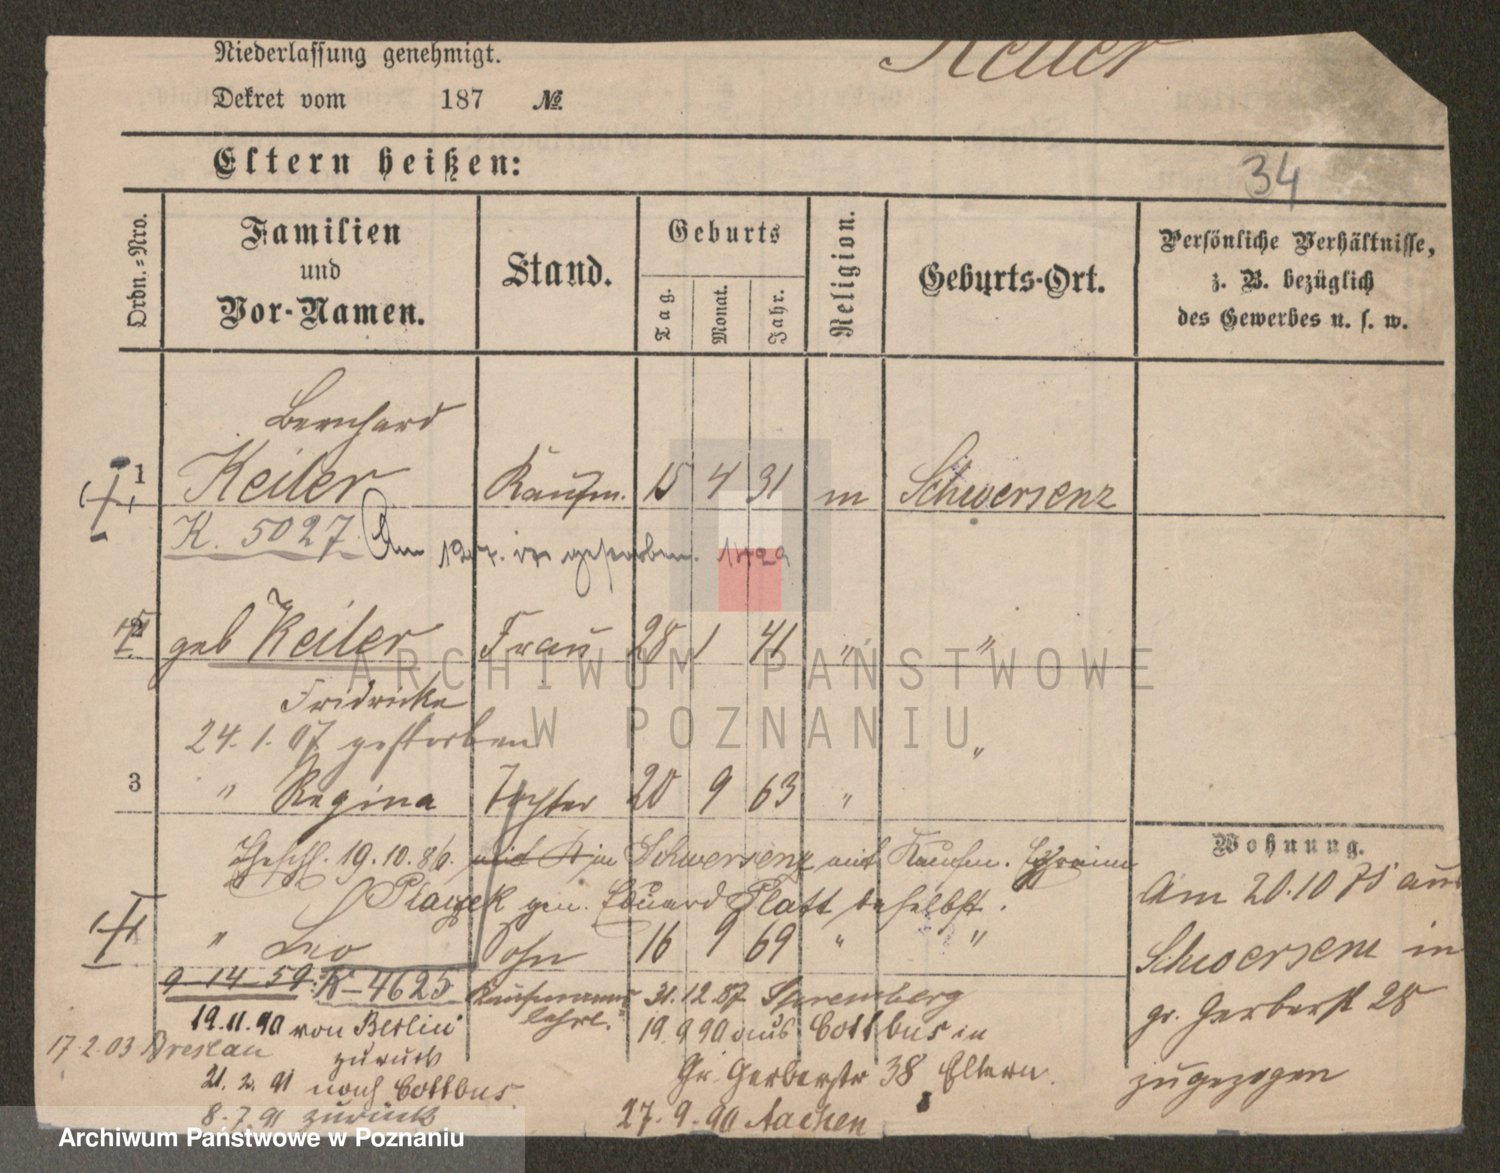 Niederlassung genehmigt.
Keiler
Dekret vom 187 №.
Eltern heißen:
34
Ordn.-Nro.
Familien
und
Vor-Namen.
Stand.
Geburts
Tag.
Monat.
Jahr.
Religion.
Geburts-Ort.
Persönliche Verhältnisse,
z. B. bezüglich
des Gewerbes u. s. w.
Bernhard
1 Keiler Kaufm. 15 4 31 m Schwersenz
K. 5027. Am gestorben.
2 geb Keiler Frau 28 1 41 " "
Fridricke
24. 1. 07 gestorben "
3 " Regina Tochter 20 9 63 "
Wohnung.
19. 10. 86. mit in Schwersenz mit Kaufm. Ephraim
gen. Eduard Platt daselbst.
Am 20. 10 75 aus
" Leo Sohn 16 9 69 " "
Schwersenz in
9-14-59. K-4625 Kaufmanns 31. 12. 87 Spremberg
gr. Gerberst 28
19. 11. 90 von Berlin lehrl. 19. 9 90 aus Cottbus in
17. 2. 03 Breslau zurück Gr. Gerberstr 38 Eltern.
zugezogen
21. 2. 91 nach Cottbus
8. 7. 91 zurück 27. 9. 90 Aachen
ARCHIWUM PAŃSTWOWE
W POZNANIU
Archiwum Państwowe w Poznaniu